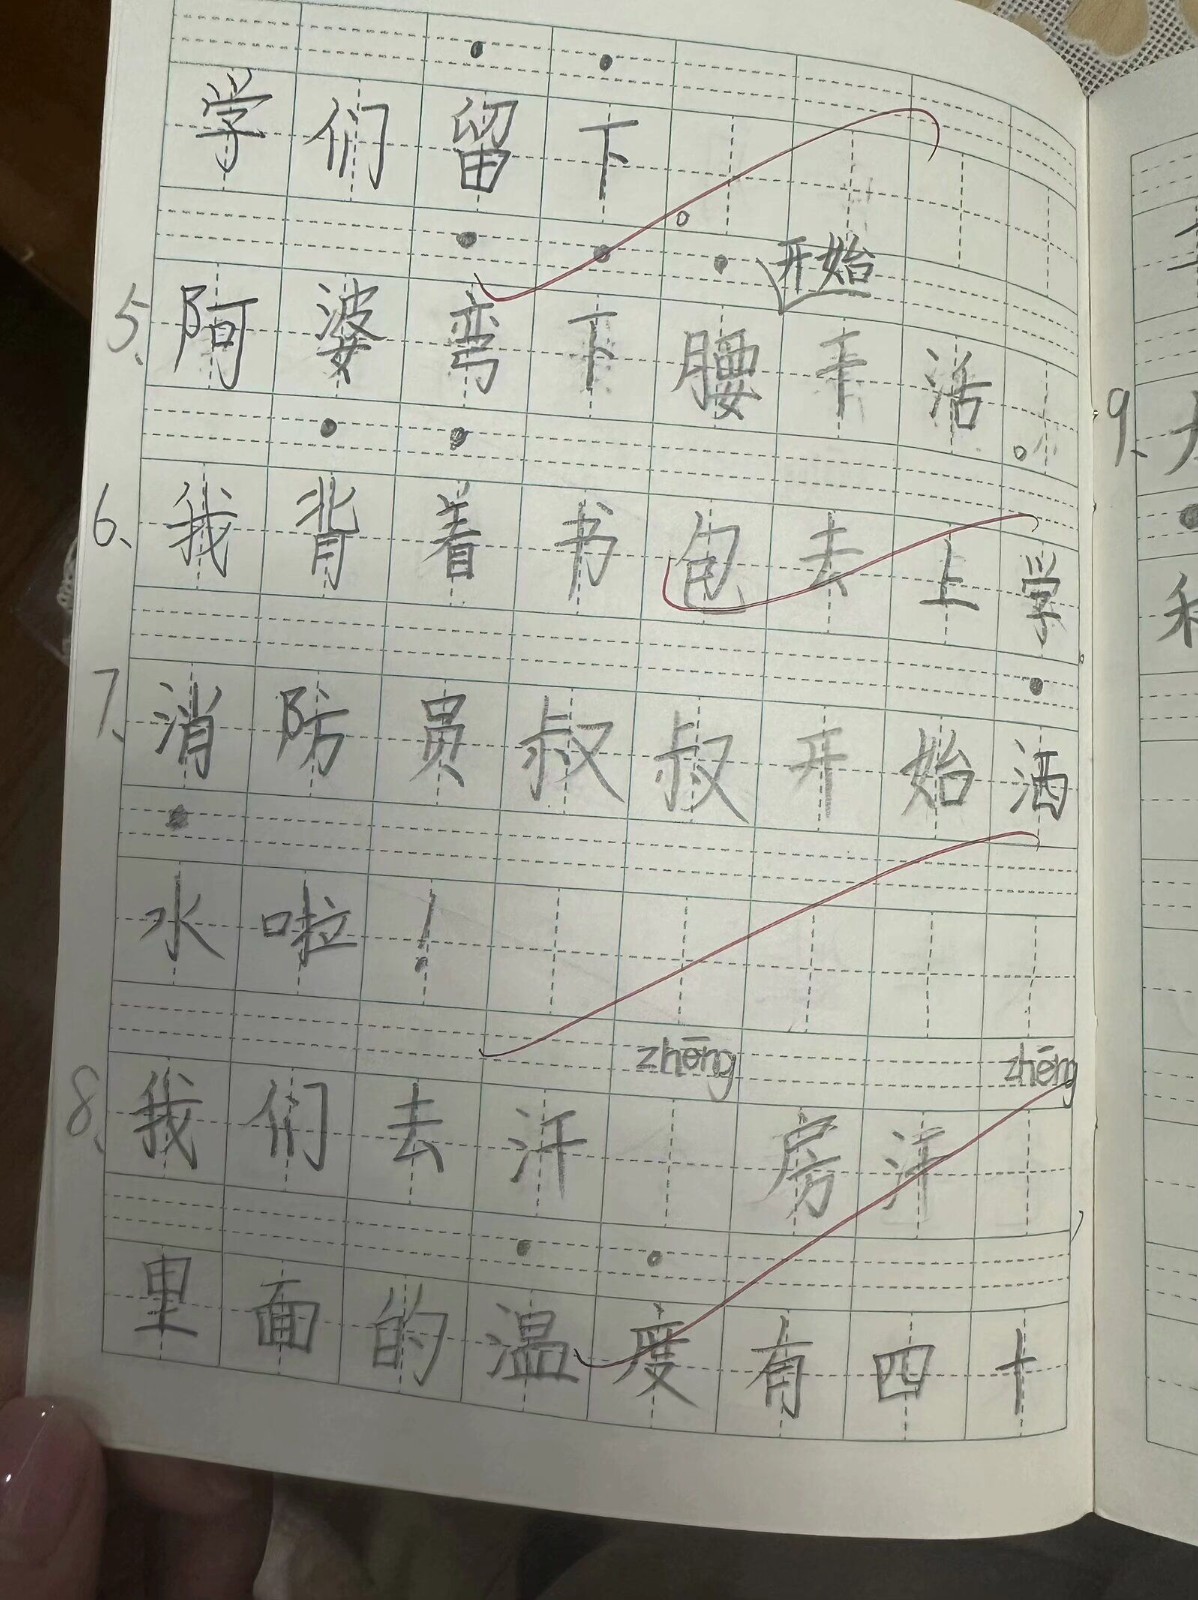 学们留下。
开始
5、阿婆弯下腰干活。
6、我背着书包去上学。
7、消防员叔叔开始洒
水啦！
zhēng zhēng
8、我们去汗 房汗
里面的温度有四十
9、